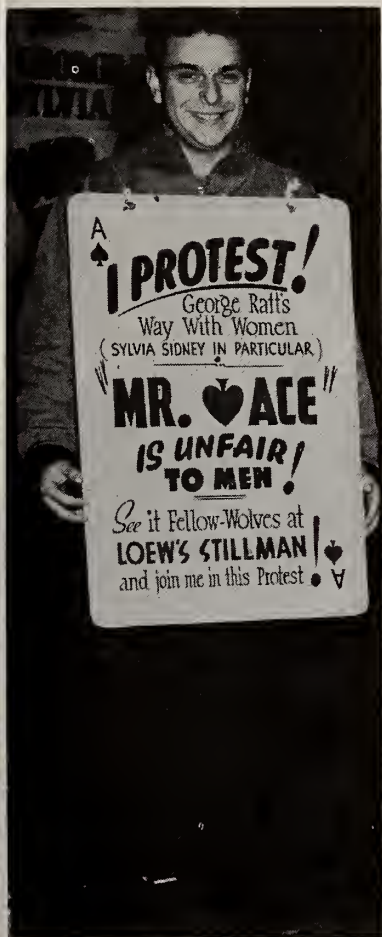 YLVIA
A
I PROTEST!
George Raft's
Way With Women
(SYLVIA SIDNEY IN PARTICULAR)
"MR. ACE"
IS UNFAIR
TO MEN!
See it Fellow-Wolves at
LOEW'S STILLMAN!
and join me in this Protest
A